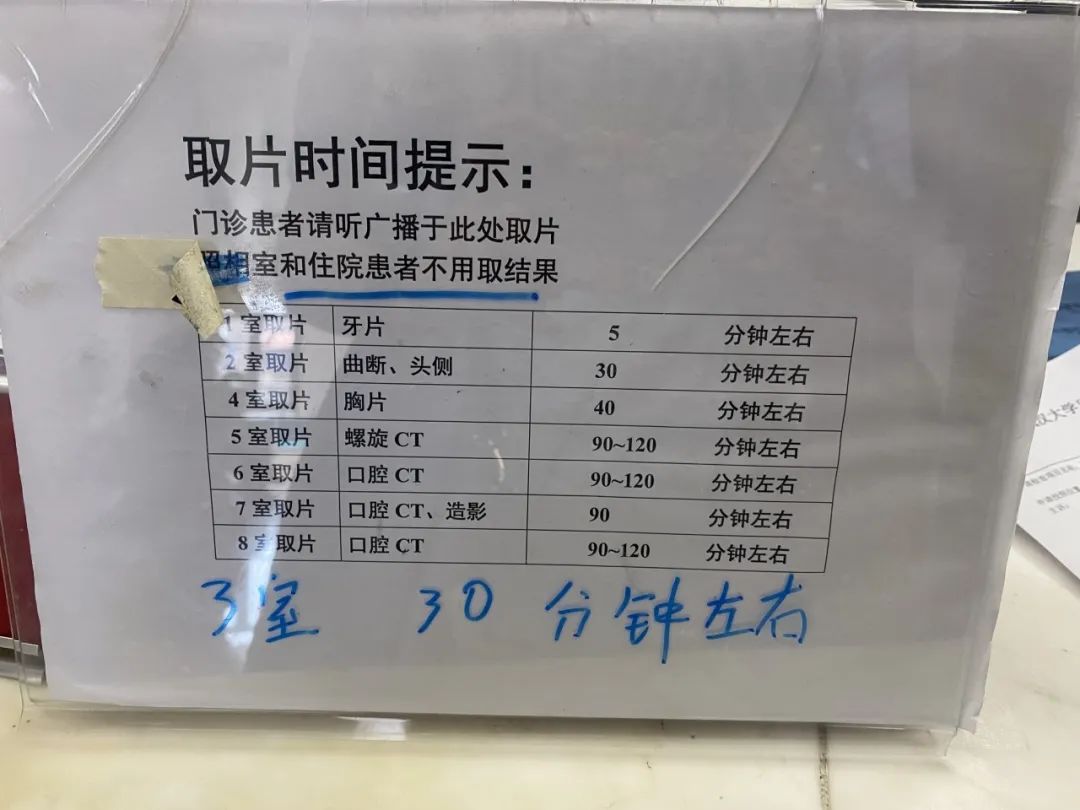 取片时间提示：
门诊患者请听广播于此处取片
照相室和住院患者不用取结果
1 室取片 牙片 5 分钟左右
2 室取片 曲断、头侧 30 分钟左右
4 室取片 胸片 40 分钟左右
5 室取片 螺旋 CT 90~120 分钟左右
6 室取片 口腔 CT 90~120 分钟左右
7 室取片 口腔 CT、造影 90 分钟左右
8 室取片 口腔 CT 90~120 分钟左右
3室 30 分钟左右
汉大学